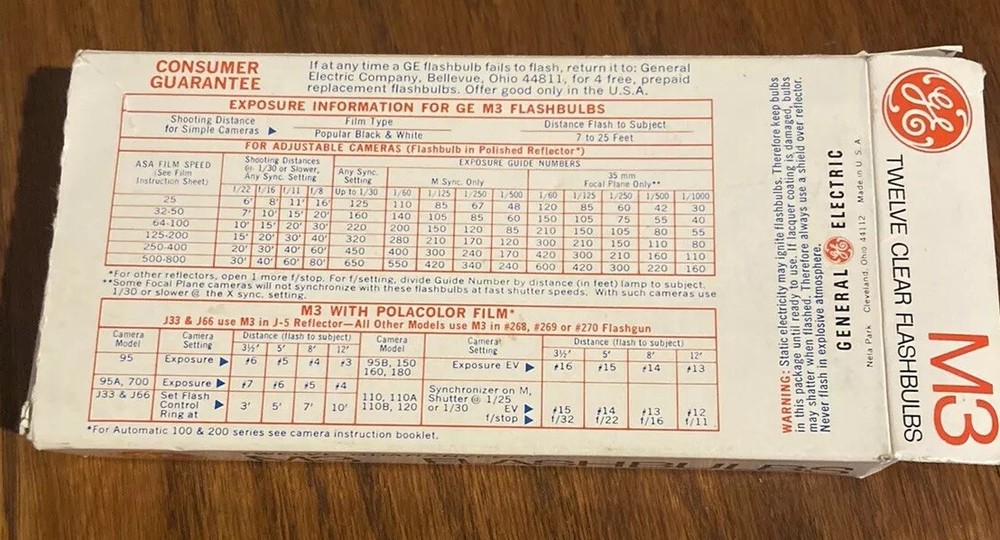 CONSUMER
GUARANTEE
If at any time a GE flashbulb fails to flash, return it to: General
Electric Company, Bellevue, Ohio 44811, for 4 free, prepaid
replacement flashbulbs. Offer good only in the U.S.A.
EXPOSURE INFORMATION FOR GE M3 FLASHBULBS
Shooting Distance
for Simple Cameras ▶
Film Type
Popular Black & White
Distance Flash to Subject
7 to 25 Feet
FOR ADJUSTABLE CAMERAS (Flashbulb in Polished Reflector*)
ASA FILM SPEED
(See Film
Instruction Sheet)
Shooting Distances
@ 1/30 or Slower,
Any Sync. Setting
EXPOSURE GUIDE NUMBERS
Any Sync.
Setting
M Sync. Only
35 mm
Focal Plane Only**
f/22 f/16 f/11 f/8 Up to 1/30 1/60 1/125 1/250 1/500 1/60 1/125 1/250 1/500 1/1000
25 6' 8' 11' 16' 125 110 85 67 48 120 85 60 42 30
32-50 7' 10' 15' 20' 160 140 105 85 60 150 105 75 55 40
64-100 10' 15' 20' 30' 220 200 150 120 85 210 150 105 80 55
125-200 15' 20' 30' 40' 320 280 210 170 120 300 210 150 110 80
250-400 20' 30' 40' 60' 450 400 300 240 170 420 300 210 160 110
500-800 30' 40' 60' 80' 650 550 420 340 240 600 420 300 220 160
*For other reflectors, open 1 more f/stop. For f/setting, divide Guide Number by distance (in feet) lamp to subject.
**Some Focal Plane cameras will not synchronize with these flashbulbs at fast shutter speeds. With such cameras use
1/30 or slower @ the X sync. setting.
M3 WITH POLACOLOR FILM*
J33 & J66 use M3 in J-5 Reflector—All Other Models use M3 in #268, #269 or #270 Flashgun
Camera
Model
Camera
Setting
Distance (flash to subject)
3½' 5' 8' 12'
Camera
Model
Camera
Setting
Distance (flash to subject)
3½' 5' 8' 12'
95 Exposure ▶ #6 #5 #4 #3
95B, 150
160, 180
Exposure EV ▶ #16 #15 #14 #13
95A, 700 Exposure ▶ #7 #6 #5 #4
J33 & J66
Set Flash
Control ▶
Ring at
3' 5' 7' 10'
110, 110A
110B, 120
Synchronizer on M,
Shutter @ 1/25
or 1/30
EV ▶ #15 #14 #13 #12
f/stop ▶ f/32 f/22 f/16 f/11
*For Automatic 100 & 200 series see camera instruction booklet.
WARNING: Static electricity may ignite flashbulbs. Therefore keep bulbs
in this package until ready to use. If lacquer coating is damaged, bulbs
may shatter when flashed. Therefore always use a shield over reflector.
Never flash in explosive atmosphere.
GENERAL GE ELECTRIC
Nela Park Cleveland, Ohio 44112 Made in U.S.A
GE
TWELVE CLEAR FLASHBULBS
M3
FLASHBULBS